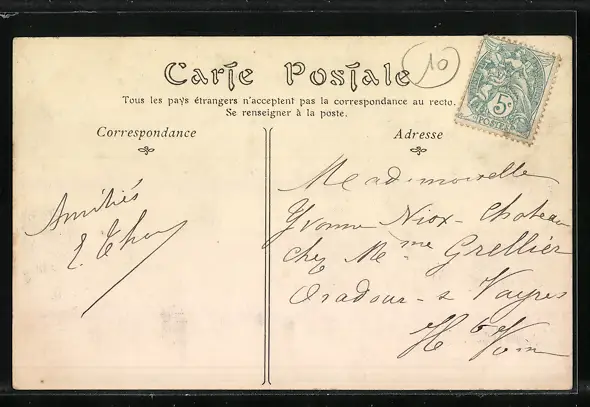 Carte Postale
10
5c
POSTES
Tous les pays étrangers n'acceptent pas la correspondance au recto.
Se renseigner à la poste.
Correspondance
Adresse
Amitiés
Mademoiselle
Yvonne Niox-Chateau
chez Mme Grellier
Oradour-s Vayres
Hte Vien